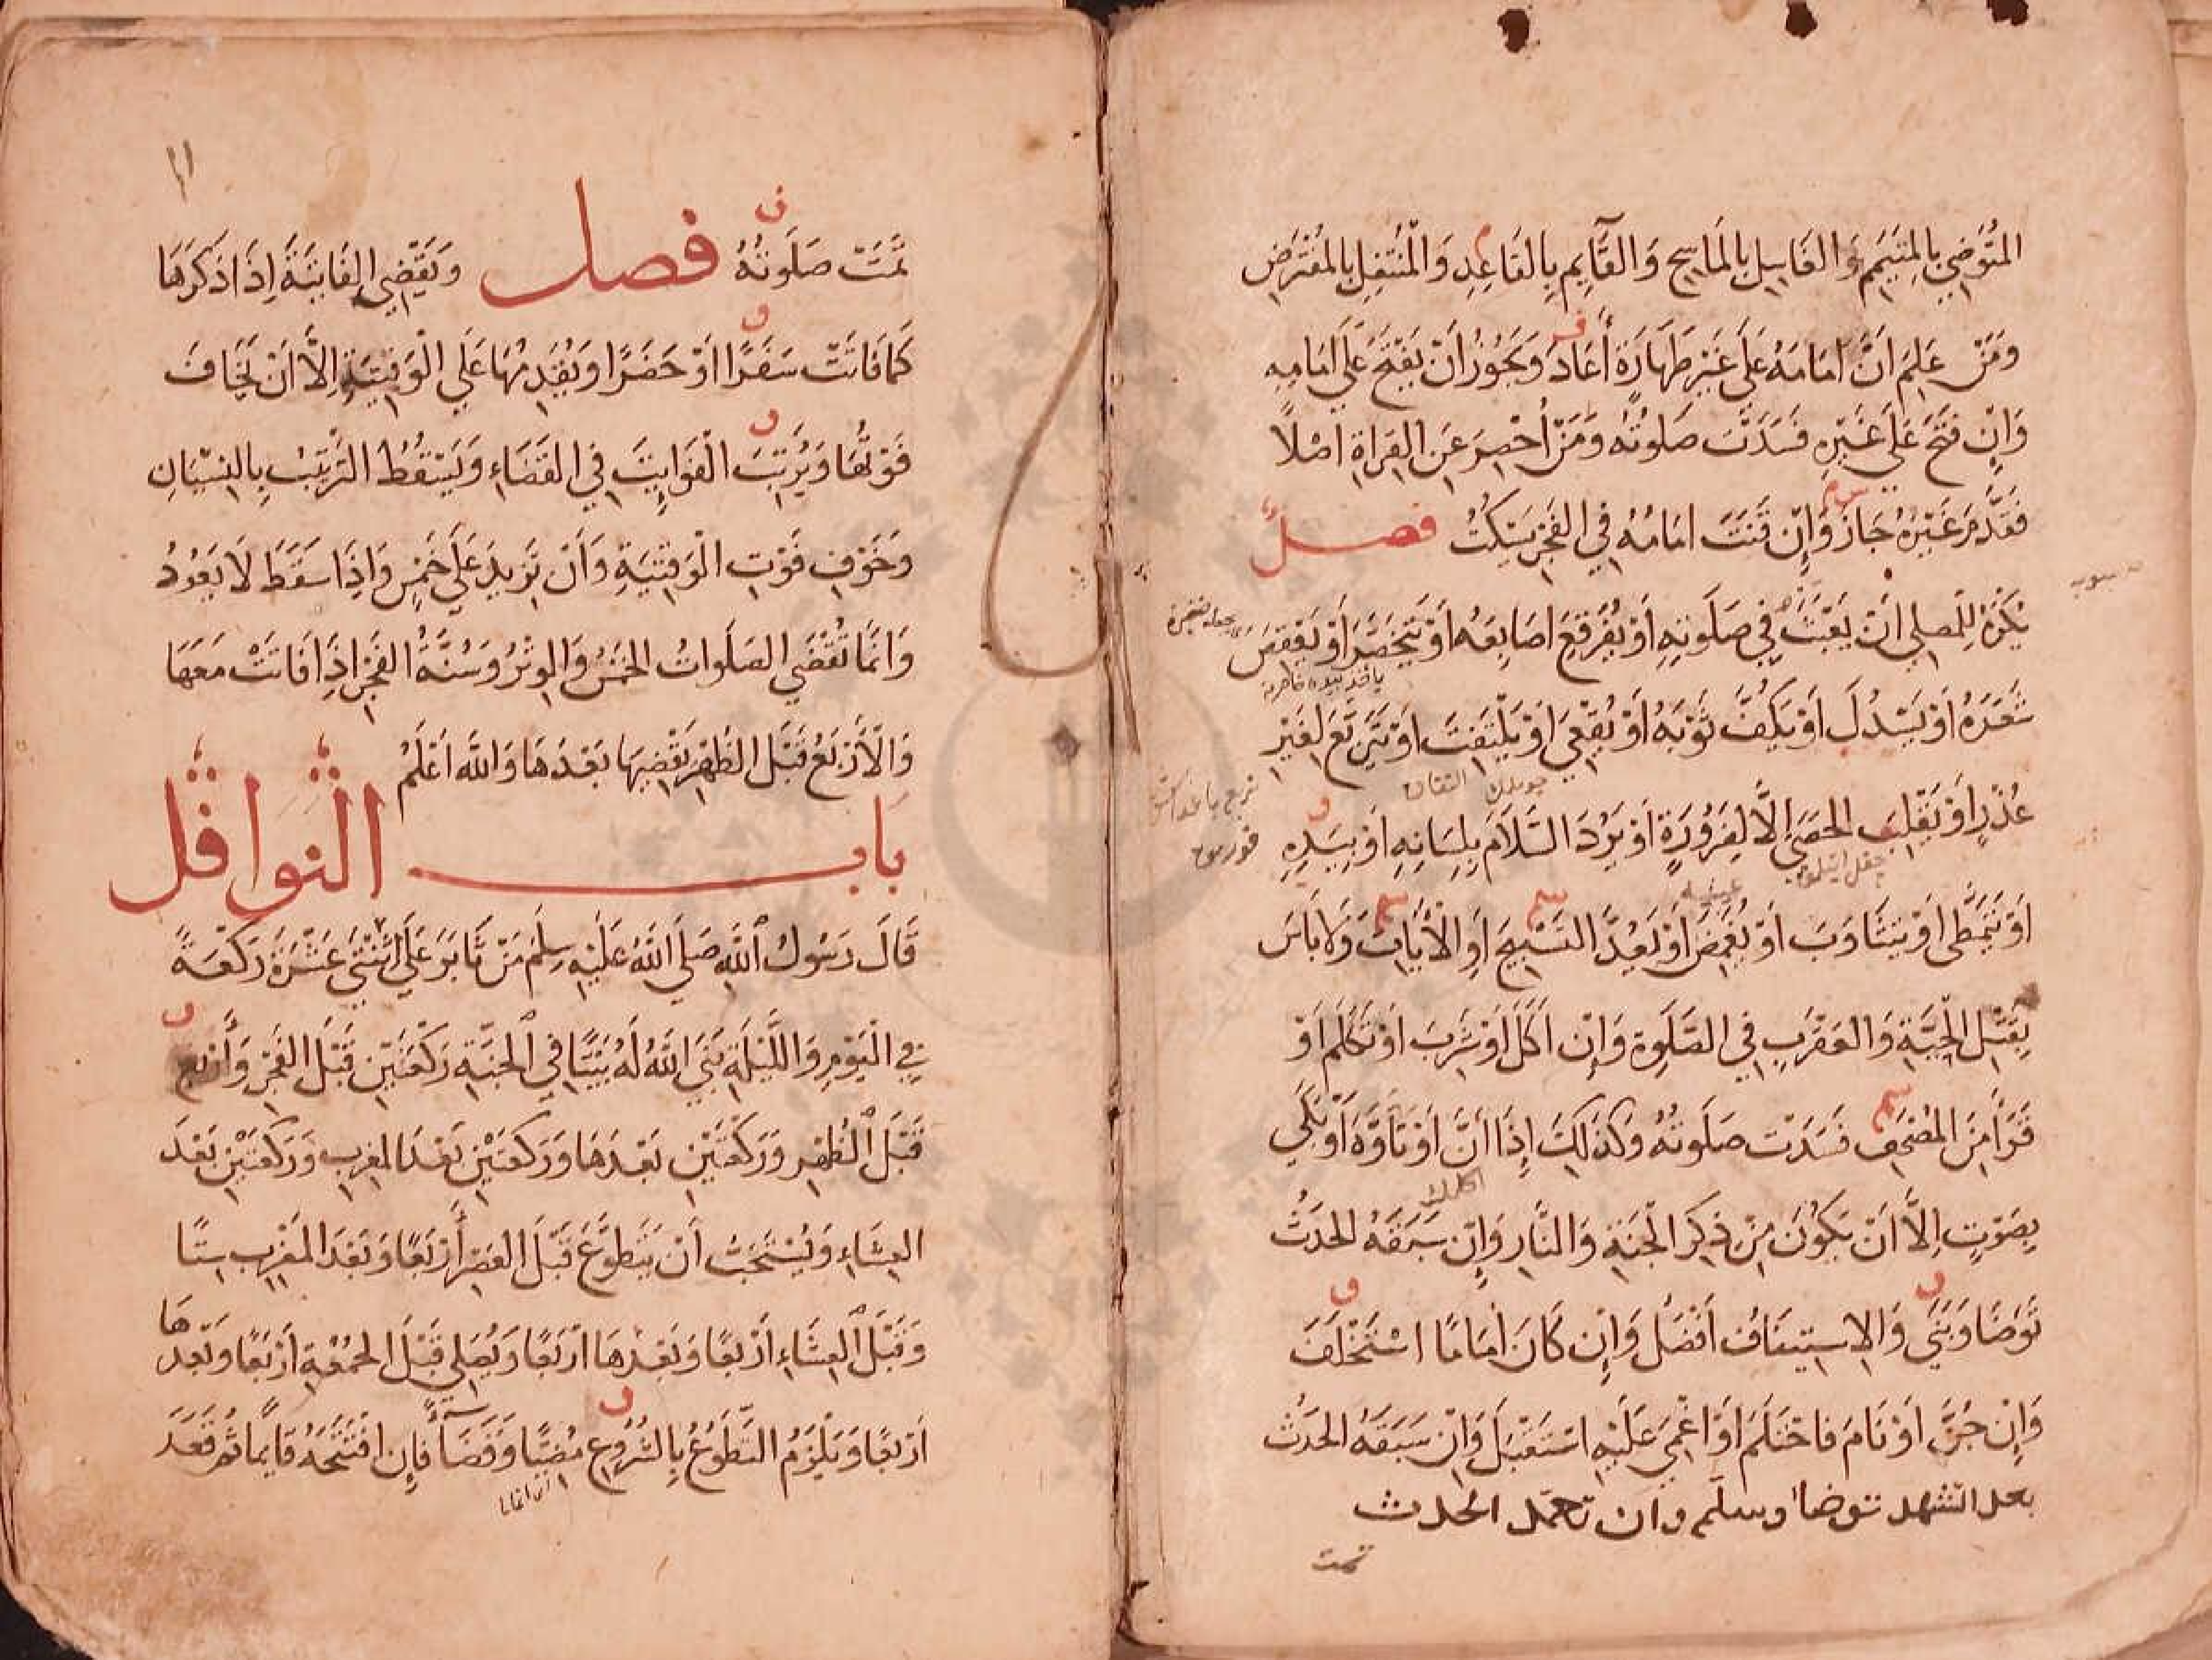 المُتَوَضِي بِالمُتَيَمِمِ وَالغَاسِلِ بِالمَاسِحِ وَالقَآيِمِ بِالقَاعِدِ وَالْمُتَنَفِلِ بِالمُفْتَرِضِ
وَمَنْ عَلِمَ اَنَّ اِمَامَهُ عَلَى غَيْرِ طَهَارَةٍ أَعَادَ وَيَجُوزُ اَنْ يَفْتَحَ عَلَي اِمَامِهِ
وَاِنْ فَتَحَ عَلَي غَيْرِهِ فَسَدَتْ صَلوتُهُ وَمَنْ اُحْصِرَ عَنِ القِرَاةِ اَصْلاً
فَقَدَّمَ غَيْرَهُ جَازَ وَاِنْ قَنَتَ اِمَامُهُ فِي الفَجْرِ يَسْكُتُ فصل
يُكْرَهُ لِلْمُصَلِي اَنْ يَعْبَثَ فِي صَلَوتِهِ اَوْ يُفَرقِعَ اَصَابِعَهُ اَوْ يَتَخَصَّرَ اَوْ يَعْقِصَ
شَعَرَهُ اَوْ يَسْدُلَ اَوْ يَكُفَّ ثَوْبَهُ اَوْ يُقْعِي اَوْ يَلْتَفِتَ اَوْ يَتَرَبَّعَ لِغَيْرِ
عُذْرٍ اَوْ يَقْلِبَ الحَصَي اِلَّا لِضَرُورَةٍ اَوْ يَرُدَ السَّلَامَ بِلِسَانِهِ اَوْ بِيَدِهِ
اَوْ يَتَمَطَّى اَوْ يَتَثَاوَبَ اَوْ يُغَمِضَ اَوْ يَعُدَّ التَسْبِيحَ اَوِ الْاٰيَاتِ وَلَا بَاسَ
بِقَتْلِ الْحَيَّةِ وَالعَقْرَبِ فِي الصَّلَوةِ وَاِنْ اَكَلَ اَوْ شَرِبَ اَوْ تَكَلَّمَ اَوْ
قَرَاَ مِنَ المُصْحَفِ فَسَدَتْ صَلَوتُهُ وَكَذَلِكَ اِذَا اَنَّ اَوْ تَاَوَّهَ اَوْ بَكَي
بِصَوْتٍ اِلَّا اَنْ يَكُونَ مِنْ ذِكرِ الْجَنَةِ وَالنَّارِ وَاِنْ سَبَقَهُ الحَدَثُ
تَوَضَا وَبَنَي وَالاِسْتِينَافُ اَفْضَلُ وَاِنْ كَانَ اِمَامًا اسْتَخْلَفَ
وَاِنْ جُنَّ اَوْ نَامَ فَاحْتَلَمَ اَوْ اُغْمِيَ عَلَيْهِ اسْتَقْبَلَ وَاِنْ سَبَقَهُ الحَدَثُ
بعد التشهد توضا وسلم وان تعمد الحدث
تمت
١١
تَمَّتْ صَلَوتُهُ فصل وَيَقْضِي الفَايِتَةَ اِذَا ذَكَرَهَا
كَمَا فَاتَتْ سَفَرًا اَوْ حَضَرًا وَيُقَدِمُهَا عَلَي الْوَقْتِيَةِ اِلَّا اَنْ يَخَافَ
فَوْتَهَا وَيُرَتِبَ الْفَوَايِتَ فِي القَضَاءِ وَيَسْقُطُ التَرْتِيبُ بِالنِسْيَانِ
وَخَوْفِ فَوْتِ الْوَقْتِيَةِ وَاَنْ تَزِيدَ عَلَي خَمْسٍ وَاِذَا سَقَطَ لَا يَعُودُ
وَاِنَّمَا تُقْضَي الصَلَوَاتُ الخَمْسُ وَالوِتْرُ وَسُنَّةُ الفَجْرِ اِذَا فَاتَتْ مَعَهَا
وَالْاَرْبَعُ قَبْلَ الظُهْرِ يَقْضِيهَا بَعْدَهَا وَاللّٰهُ اَعْلَمُ
باب النوافل
قَالَ رَسُولُ اللّٰهِ صَلَي اللّٰهُ عَلَيْهِ وسِلَم مَنْ ثَابَرَ عَلَي اثْنَتَيْ عَشْرَةَ رَكْعَةً
فِي الْيَوْمِ وَاللَّيْلَةِ بَنَي اللّٰهُ لَهُ بَيْتًا فِي الْجَنَّةِ رَكْعَتَيْنِ قَبْلَ الفَجْرِ وَاَرْبَعٍ
قَبْلَ الظُهْرِ وَرَكْعَتَيْنِ بَعْدَهَا وَرَكْعَتَيْنِ بَعْدَ المَغْرِبِ وَرَكْعَتَيْنِ بَعْدَ
العِشَاءِ وَيُسْتَحَبُّ اَنْ يَتَطَوَّعَ قَبْلَ العَصْرِ اَرْبَعًا وَبَعْدَ المَغْرِبِ سِتًّا
وَقَبْلَ الْعِشَاءِ اَرْبَعًا وَبَعْدَهَا اَرْبَعًا وَيُصَلِي قَبْلَ الجُمُعَةِ اَرْبَعًا وَبَعْدَهَا
اَرْبَعًا وَيَلْزَمُ التَّطَوُعُ بِالشُرُوعِ مُضِيًّا وَقَضَاءً فَاِنِ افْتَتَحَهُ قَايِمًا ثُمَّ قَعَدَ